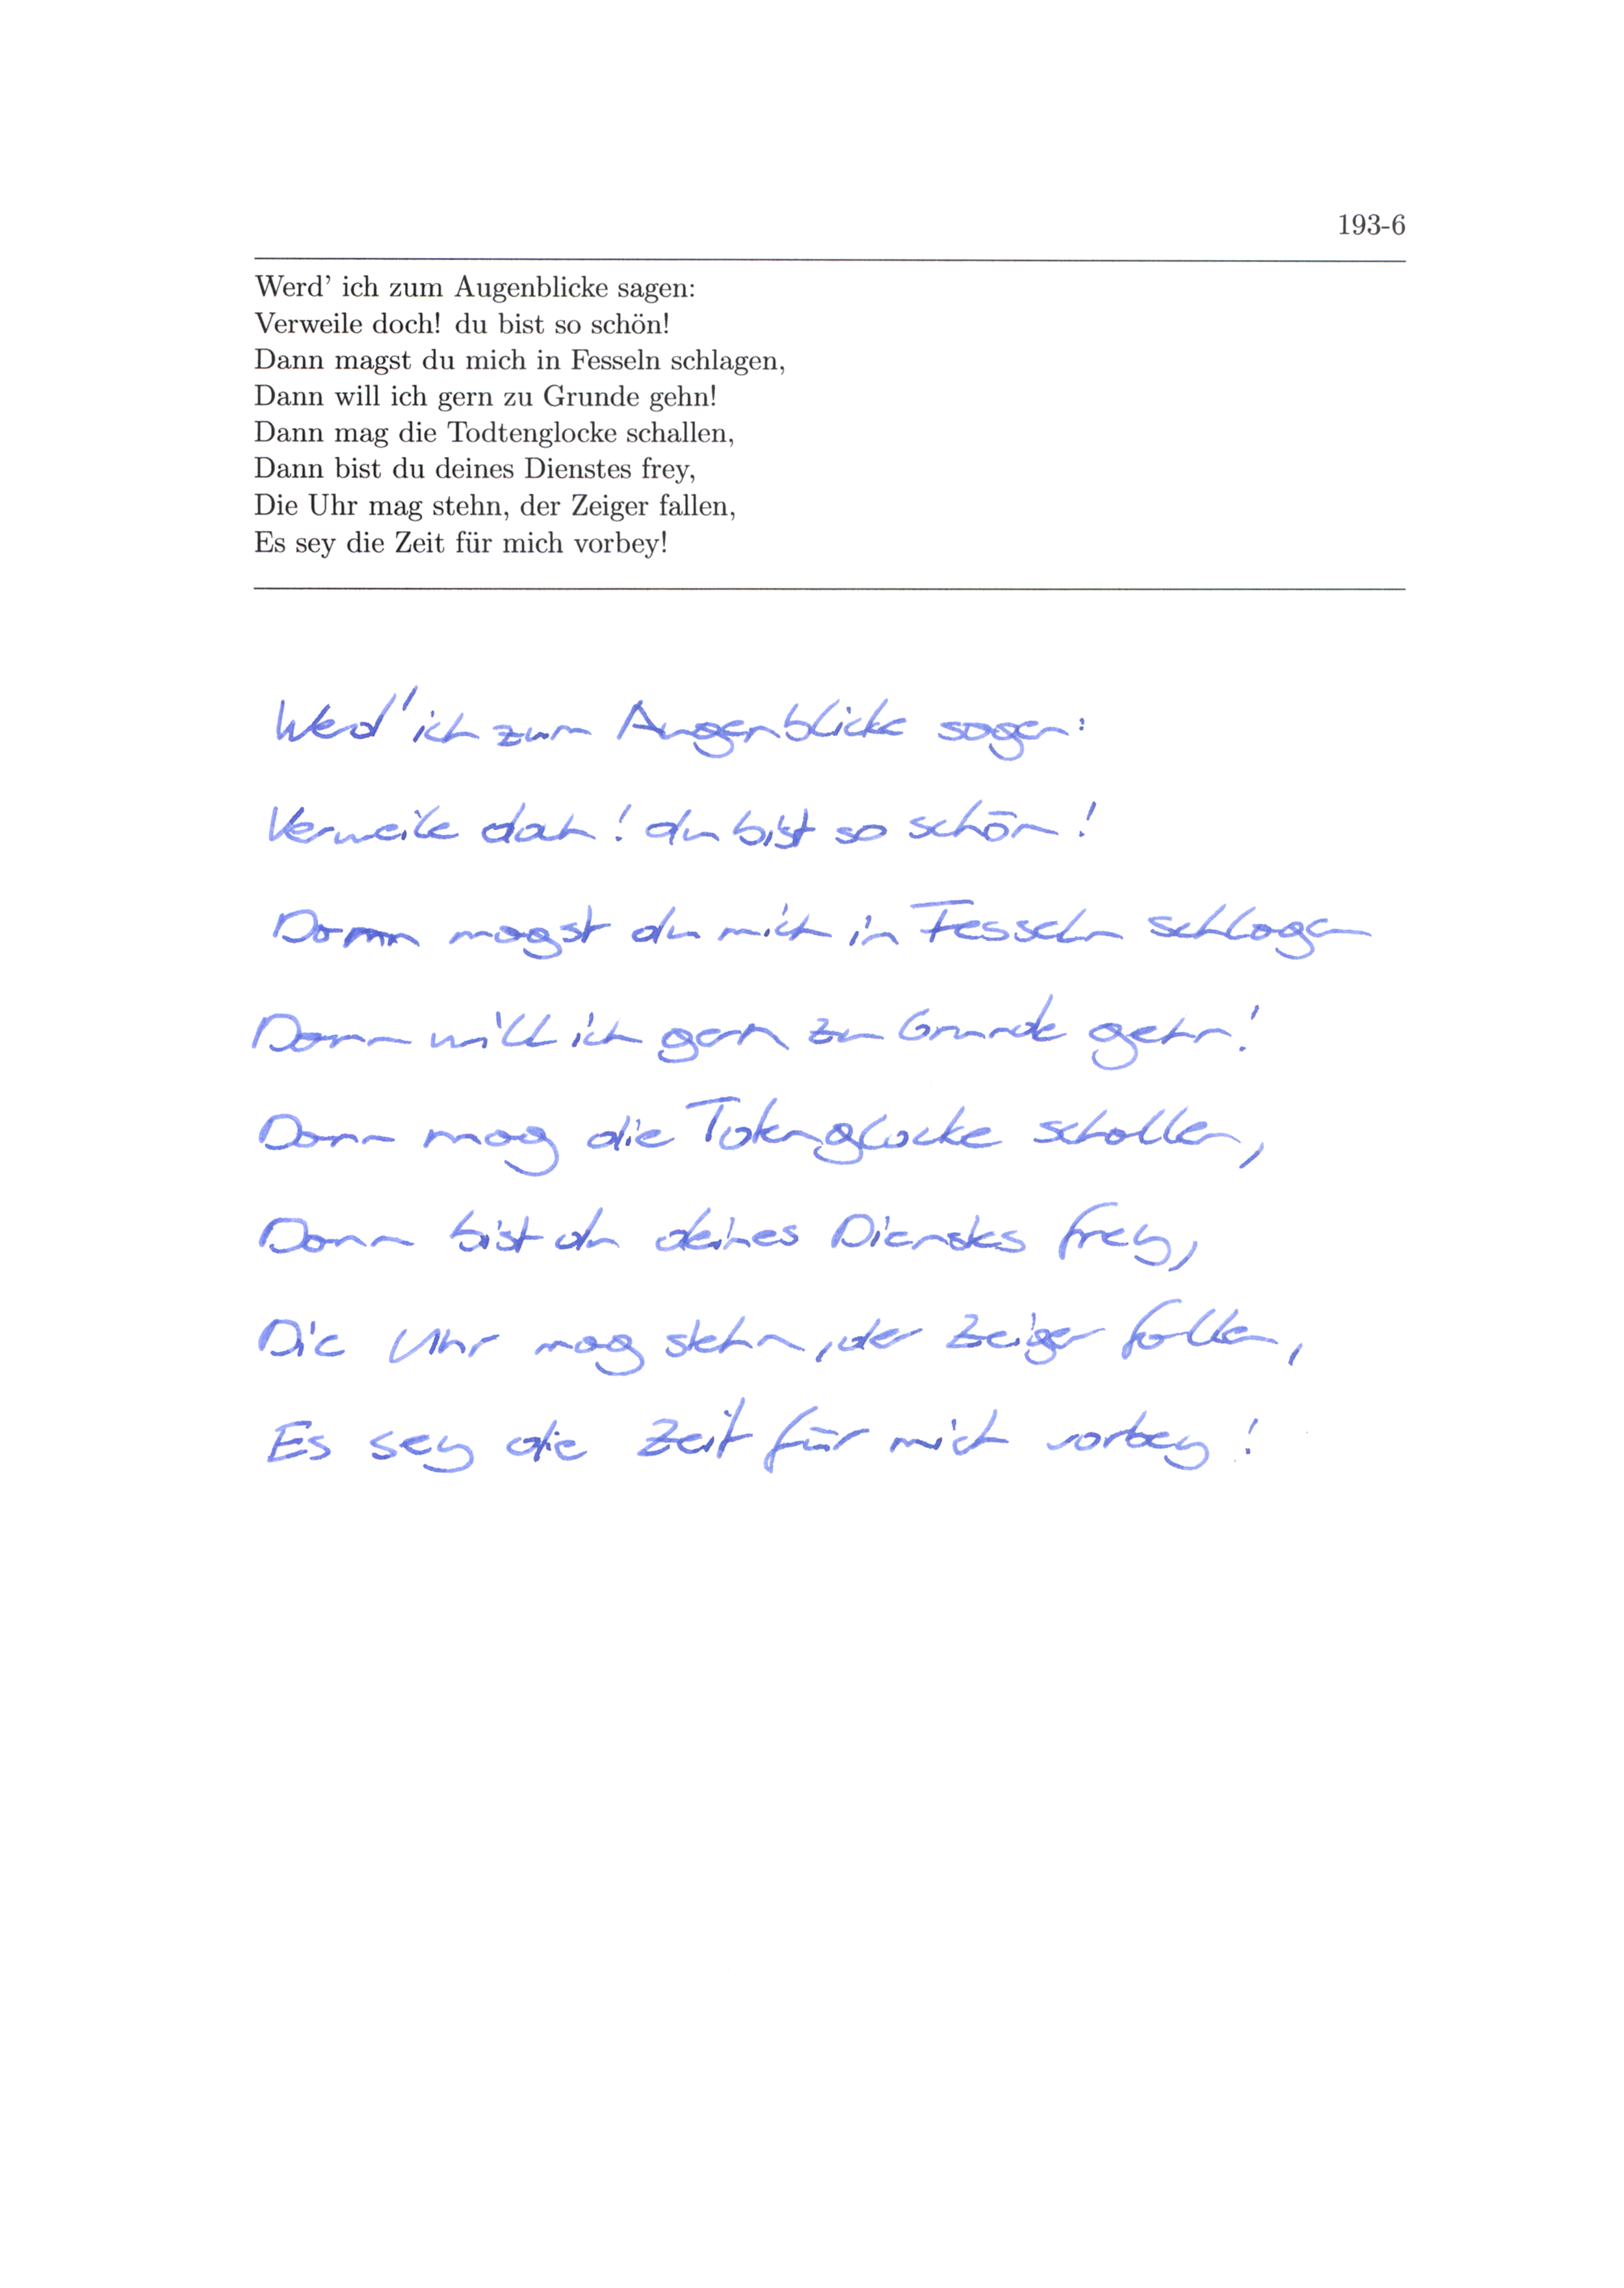 193-6
Werd' ich zum Augenblicke sagen:
Verweile doch! du bist so schön!
Dann magst du mich in Fesseln schlagen,
Dann will ich gern zu Grunde gehn!
Dann mag die Todtenglocke schallen,
Dann bist du deines Dienstes frey,
Die Uhr mag stehn, der Zeiger fallen,
Es sey die Zeit für mich vorbey!
Werd' ich zum Augenblicke sagen:
Verweile doch! du bist so schön!
Dann magst du mich in Fesseln schlagen
Dann will ich gern zu Grunde gehn!
Dann mag die Totenglocke schallen,
Dann bist du deines Dienstes frey,
Die Uhr mag stehn, der Zeiger fallen,
Es sey die Zeit für mich vorbey!